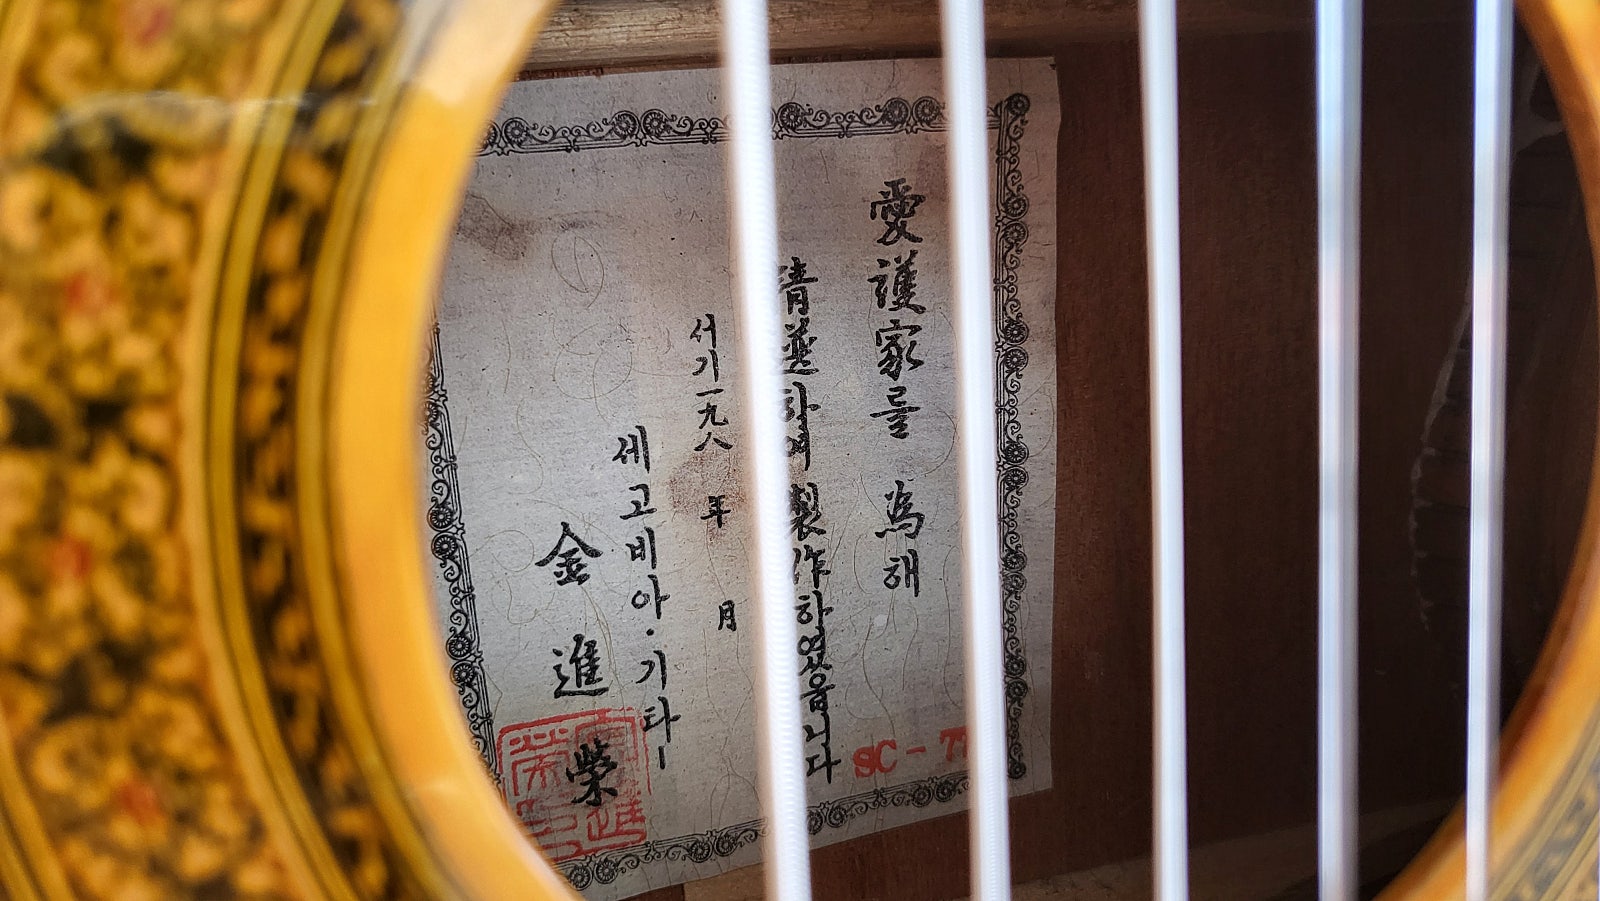 愛護家를 為해
精選하여 製作하였읍니다
서기一九八 年 月
세고비아·기타ー
金進榮
SC-7